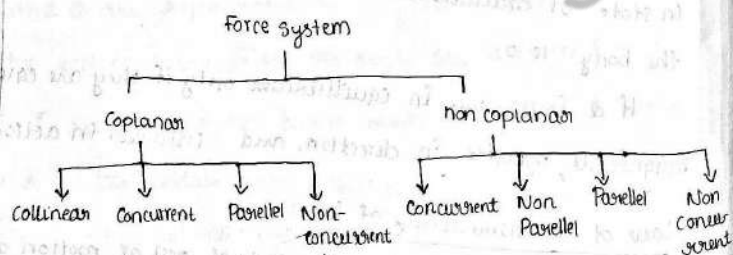 Force system
Coplanar
non coplanar
Collinear Concurrent Parellel Non-
-concurrent
Concurrent Non
Parellel
Parellel Non
Concu-
rrent